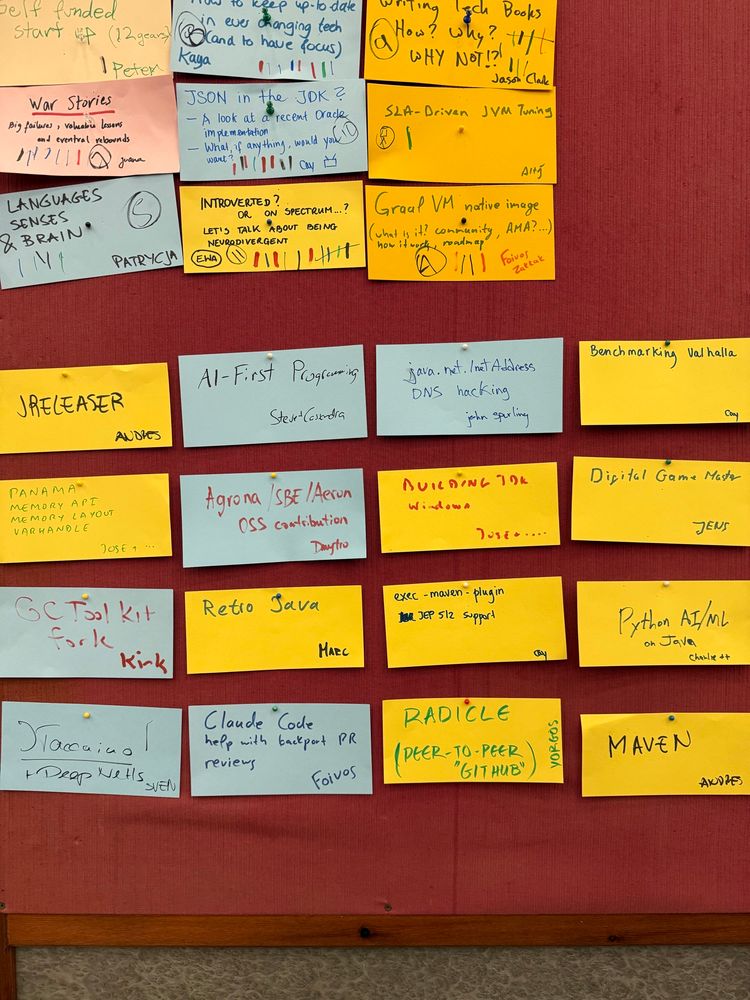 Self funded
start up (12 years)
Peter
How to keep up-to date
in ever changing tech
(and to have focus)
Kaya
Writing Tech Books
How? Why?
WHY NOT!?!
Jason Clark
War Stories
Big failures, valuable lessons
and eventual rebounds
Juana
JSON in the JDK?
- A look at a recent Oracle
implementation
- What, if anything, would you
want?
Cay
SLA-Driven JVM Tuning
LANGUAGES
SENSES
& BRAIN
S
PATRYCJA
INTROVERTED?
OR ON SPECTRUM...?
LET'S TALK ABOUT BEING
NEURODIVERGENT
EWA
Graal VM native image
(what is it? community, AMA?...)
how it works, roadmap
A
Foivos
Zakkak
JRELEASER
ANDRES
AI-First Programming
java.net.InetAddress
DNS hacking
john spurling
Benchmarking Valhalla
Cay
PANAMA
MEMORY API
MEMORY LAYOUT
VARHANDLE
JOSE + ...
Agrona/SBE/Aeron
OSS contribution
Dmytro
BUILDING JDK
Windows
JOSE + ....
Digital Game Master
JENS
GC Tool Kit
fork
Kirk
Retro Java
MARC
exec-maven-plugin
JEP 512 support
Cay
Python AI/ML
on Java
Charlie ++
+ Deep Netts
SVEN
Claude Code
help with backport PR
reviews
Foivos
RADICLE
(PEER-TO-PEER
"GITHUB")
YORGOS
MAVEN
ANDRES